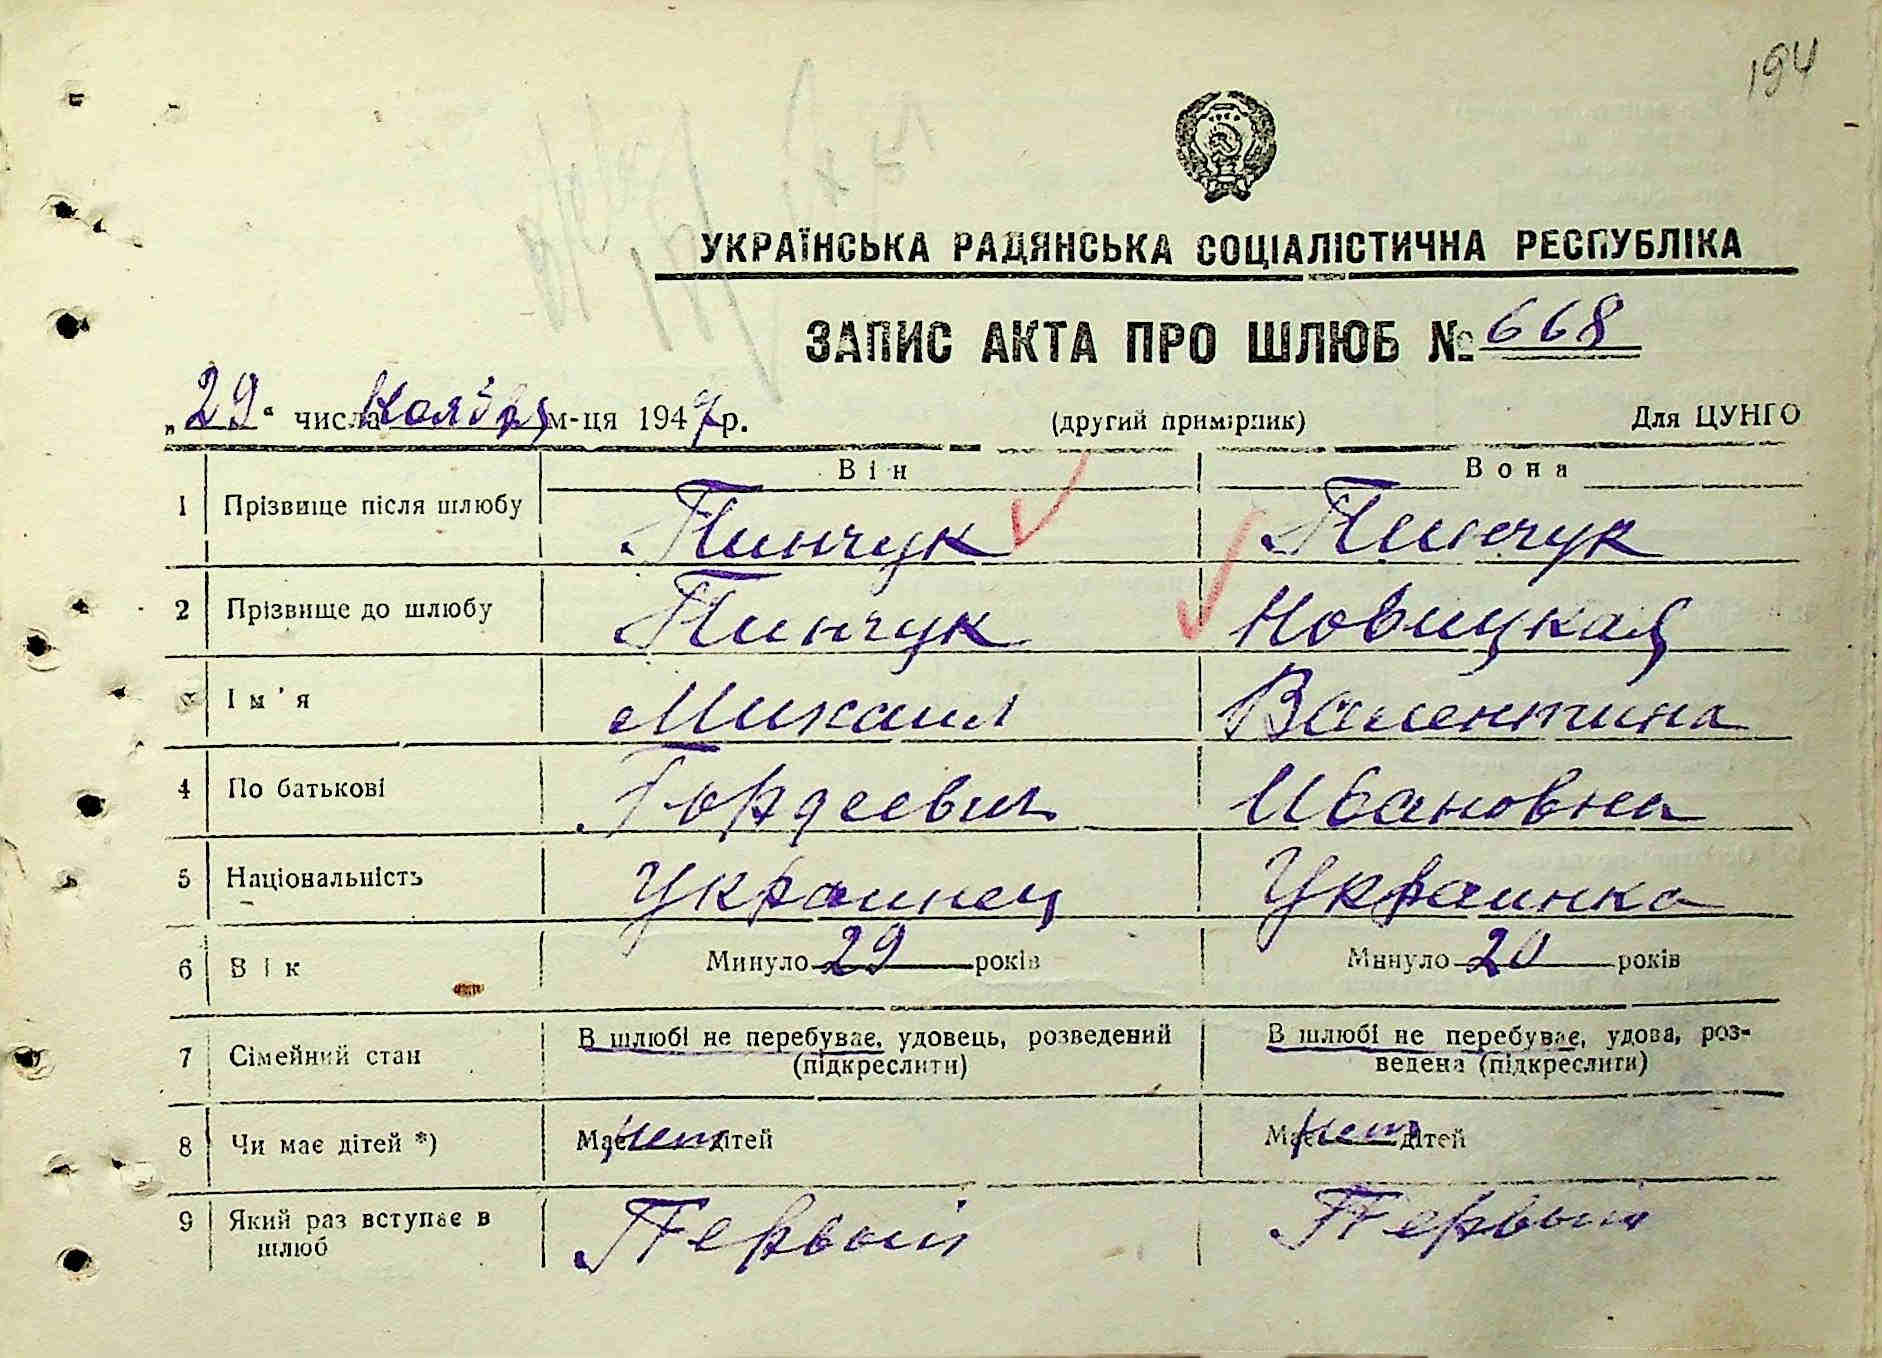 194
УКРАЇНСЬКА РАДЯНСЬКА СОЦІАЛІСТИЧНА РЕСПУБЛІКА
ЗАПИС АКТА ПРО ШЛЮБ № 668
„29“ числа Ноября м-ця 1947 р. (другий примірник) Для ЦУНГО
Він Вона
1 Прізвище після шлюбу Пинчук Пинчук
2 Прізвище до шлюбу Пинчук Новицкая
3 Ім'я Михаил Валентина
4 По батькові Гордеевич Ивановна
5 Національність Украинец Украинка
6 Вік Минуло 29 років Минуло 20 років
7 Сімейний стан В шлюбі не перебуває, удовець, розведений (підкреслити) В шлюбі не перебуває, удова, роз-
ведена (підкреслити)
8 Чи має дітей *) Має нет дітей Має нет дітей
9 Який раз вступає в шлюб Первый Первый